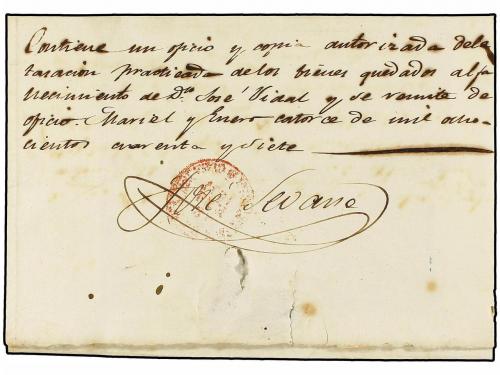 Contiene un oficio y copia autorizada dela
tasacion practicada delos bienes quedados al fa
llecimiento de Dn José Vidal y se remite de
oficio. Mariel y Enero catorce de mil ocho
cientos cuarenta y siete
José